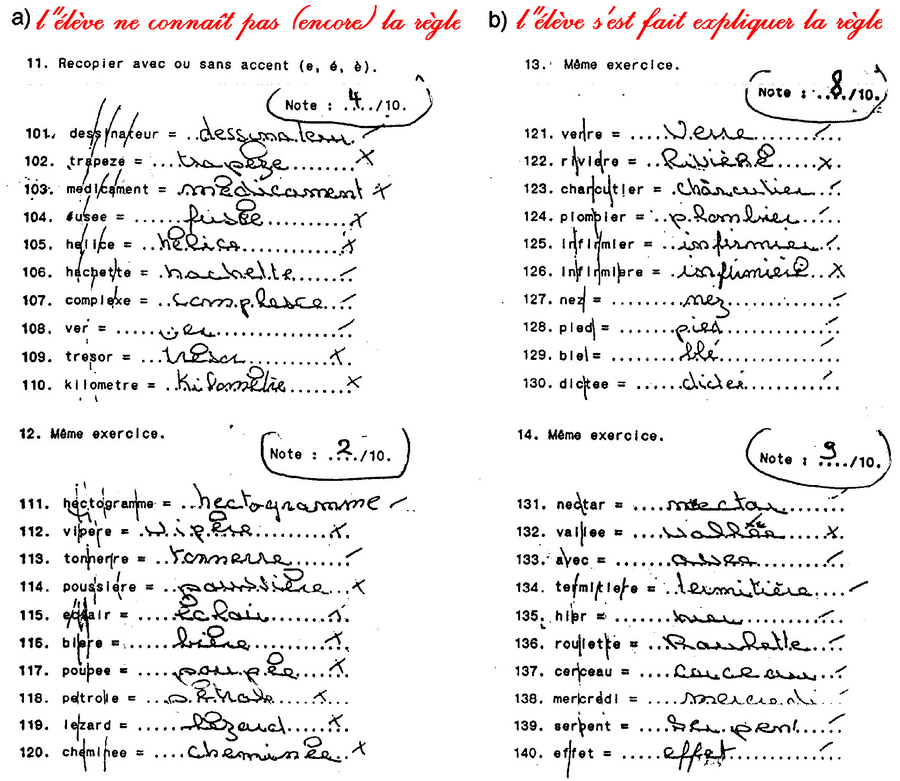 a) l'élève ne connaît pas (encore) la règle
11. Recopier avec ou sans accent (e, é, è).
Note : 4/10.
101. dessinateur = ..dessinateur
102. trapeze = ...trapèze
103. medicament = médicament
104. fusee = ......fusée
105. helice = ..hélice
106. hachette = .hachette
107. complexe = ..complexe
108. ver = ......ver
109. tresor = ...trésor
110. kilometre = .kilomètre
12. Même exercice.
Note : 2/10.
111. hectogramme = ..hectogramme
112. vipere = vipère
113. tonnerre = .tonnerre
114. poussiere = .poussière
115. eclair = ...éclair
116. biere = .....bière
117. poupee = ....poupée
118. petrole = ..pétrole
119. lezard = .....lézard
120. cheminee = ....cheminée
b) l'élève s'est fait expliquer la règle
13. Même exercice.
Note : 8/10.
121. verre = ....Verre
122. riviere = ..Rivière
123. charcutier = .charcutier
124. plombier = ..plombier
125. infirmier = ..infirmier
126. infirmiere = .infirmière
127. nez = ........nez
128. pied = .......pied
129. ble = ........blé
130. dictee = ......dictée
14. Même exercice.
Note : 9/10.
131. nectar = ....nectar
132. vallee = ....vallée
133. avec = ......avec
134. termitiere = .termitière
135. hier = .......hier
136. roulette = ..Roulette
137. cerceau = ...cerceau
138. mercredi = ...mercredi
139. serpent = ...serpent
140. effet = .....effet